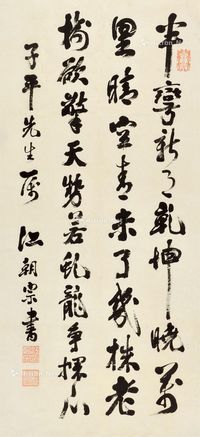 半弯新月乾坤晓万
里晴空青未了几株老
树欲擎天势若虬龙争探爪
子平先生属 江朝宗书